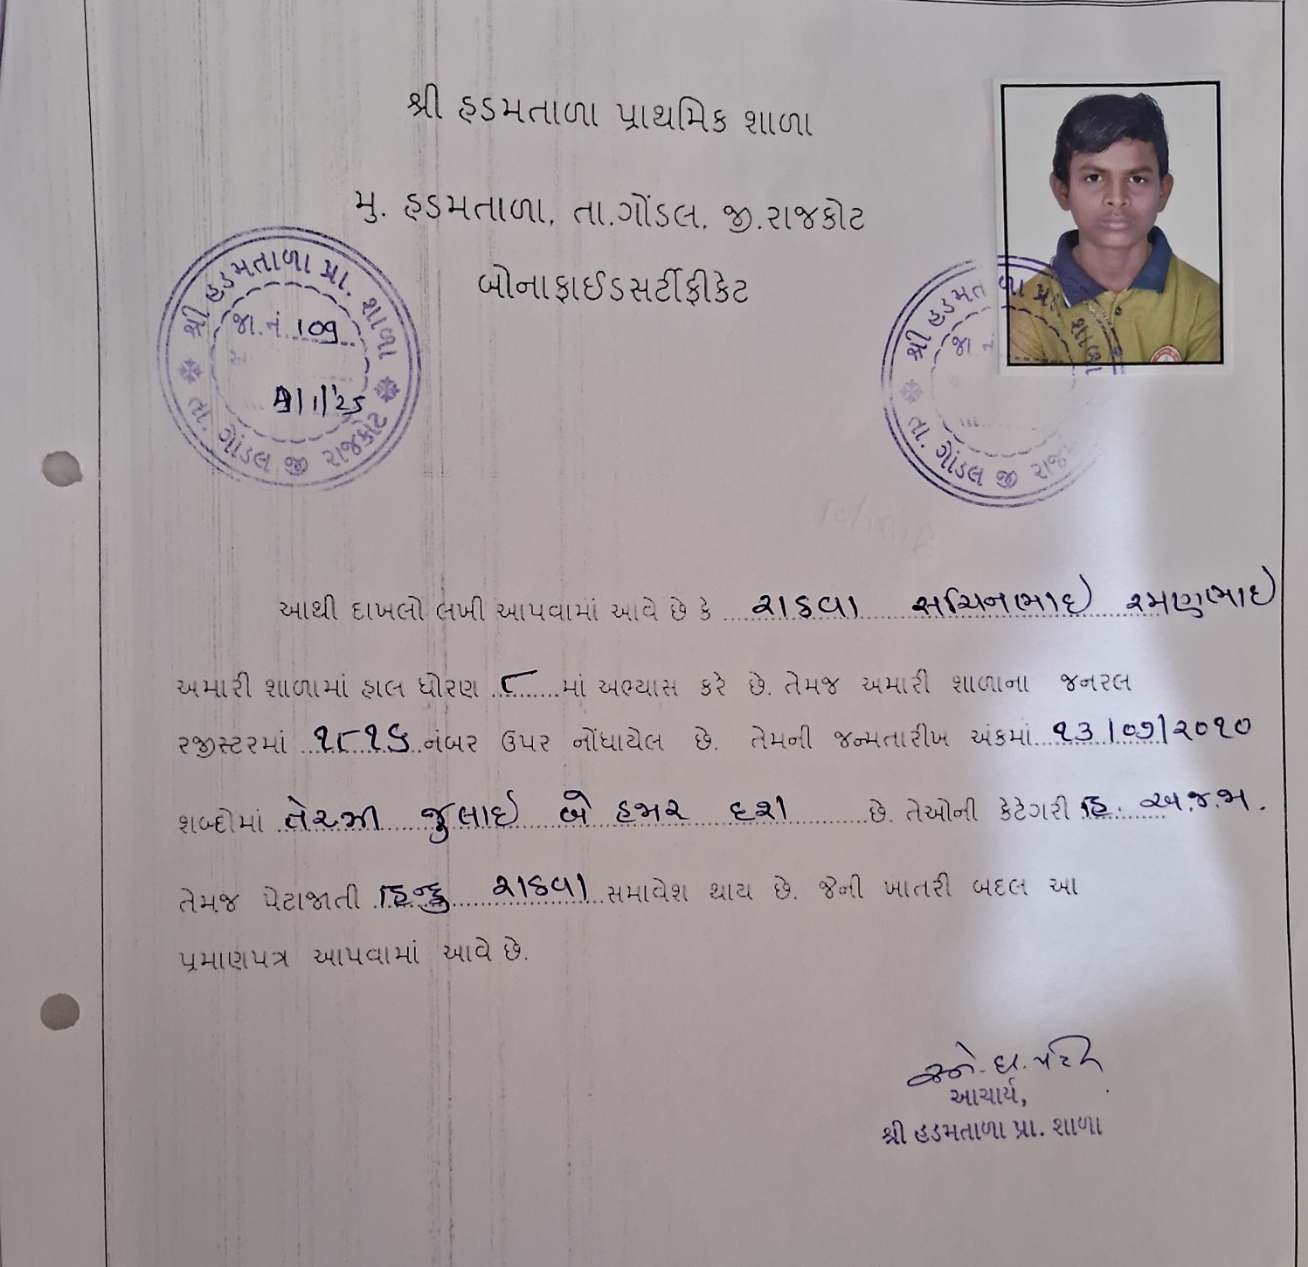 શ્રી હડમતાળા પ્રાથમિક શાળા
મુ. હડમતાળા, તા.ગોંડલ, જી.રાજકોટ
બોનાફાઈડસર્ટીફીકેટ
શ્રી હડમતાળા પ્રા. શાળા
જા.નં. 109
તા. ગોંડલ જી રાજકોટ
શ્રી હડમતાળા પ્રા. શાળા
જા નં
તા. ગોંડલ જી રાજ
આથી દાખલો લખી આપવામાં આવે છે કે રાઠવા સચિનભાઇ રમણભાઇ
અમારી શાળામાં હાલ ધોરણ ૮ માં અભ્યાસ કરે છે. તેમજ અમારી શાળાના જનરલ
રજીસ્ટરમાં ૧૮૧૬ નંબર ઉપર નોંધાયેલ છે. તેમની જન્મતારીખ અંકમાં ૧૩/૦૭/૨૦૧૦
શબ્દોમાં તેરમી જુલાઇ બે હજાર દશ છે. તેઓની કેટેગરી હિ. અ.જ.જા.
તેમજ પેટાજાતી હિન્દુ રાઠવા સમાવેશ થાય છે. જેની ખાતરી બદલ આ
પ્રમાણપત્ર આપવામાં આવે છે.
આચાર્ય,
શ્રી હડમતાળા પ્રા. શાળા